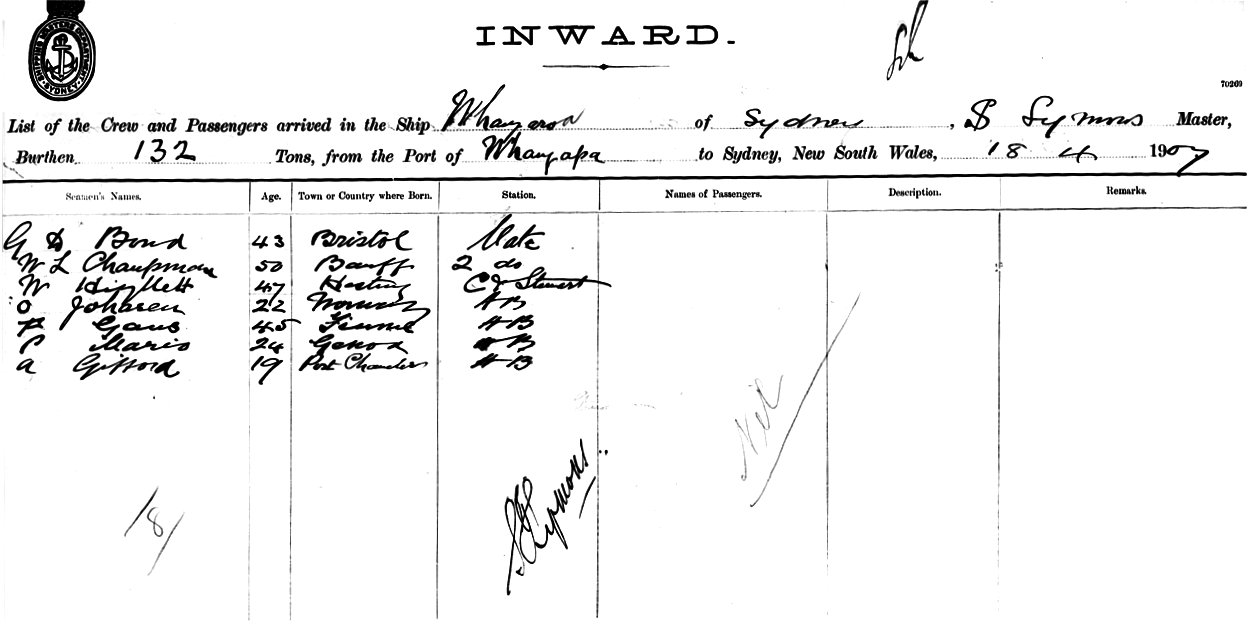 SHIPPING MASTERS DEPARTMENT SYDNEY
INWARD.
70269
List of the Crew and Passengers arrived in the Ship Whangaroa of Sydney, S Symons Master,
Burthen 132 Tons, from the Port of Whangapa to Sydney, New South Wales, 18 4 1907
Seamen's Names. Age. Town or Country where Born. Station. Names of Passengers. Description. Remarks.
G Bond 43 Bristol Mate
W L Chaupman 50 Banff 2 do
W 47 C & Steward
O Johasen 22 Norway AB
Gaus 45 Fiume AB
P Mario 24 Genoa AB
A Gifford 19 Port Chamders AB
Nil
S Symons
18/